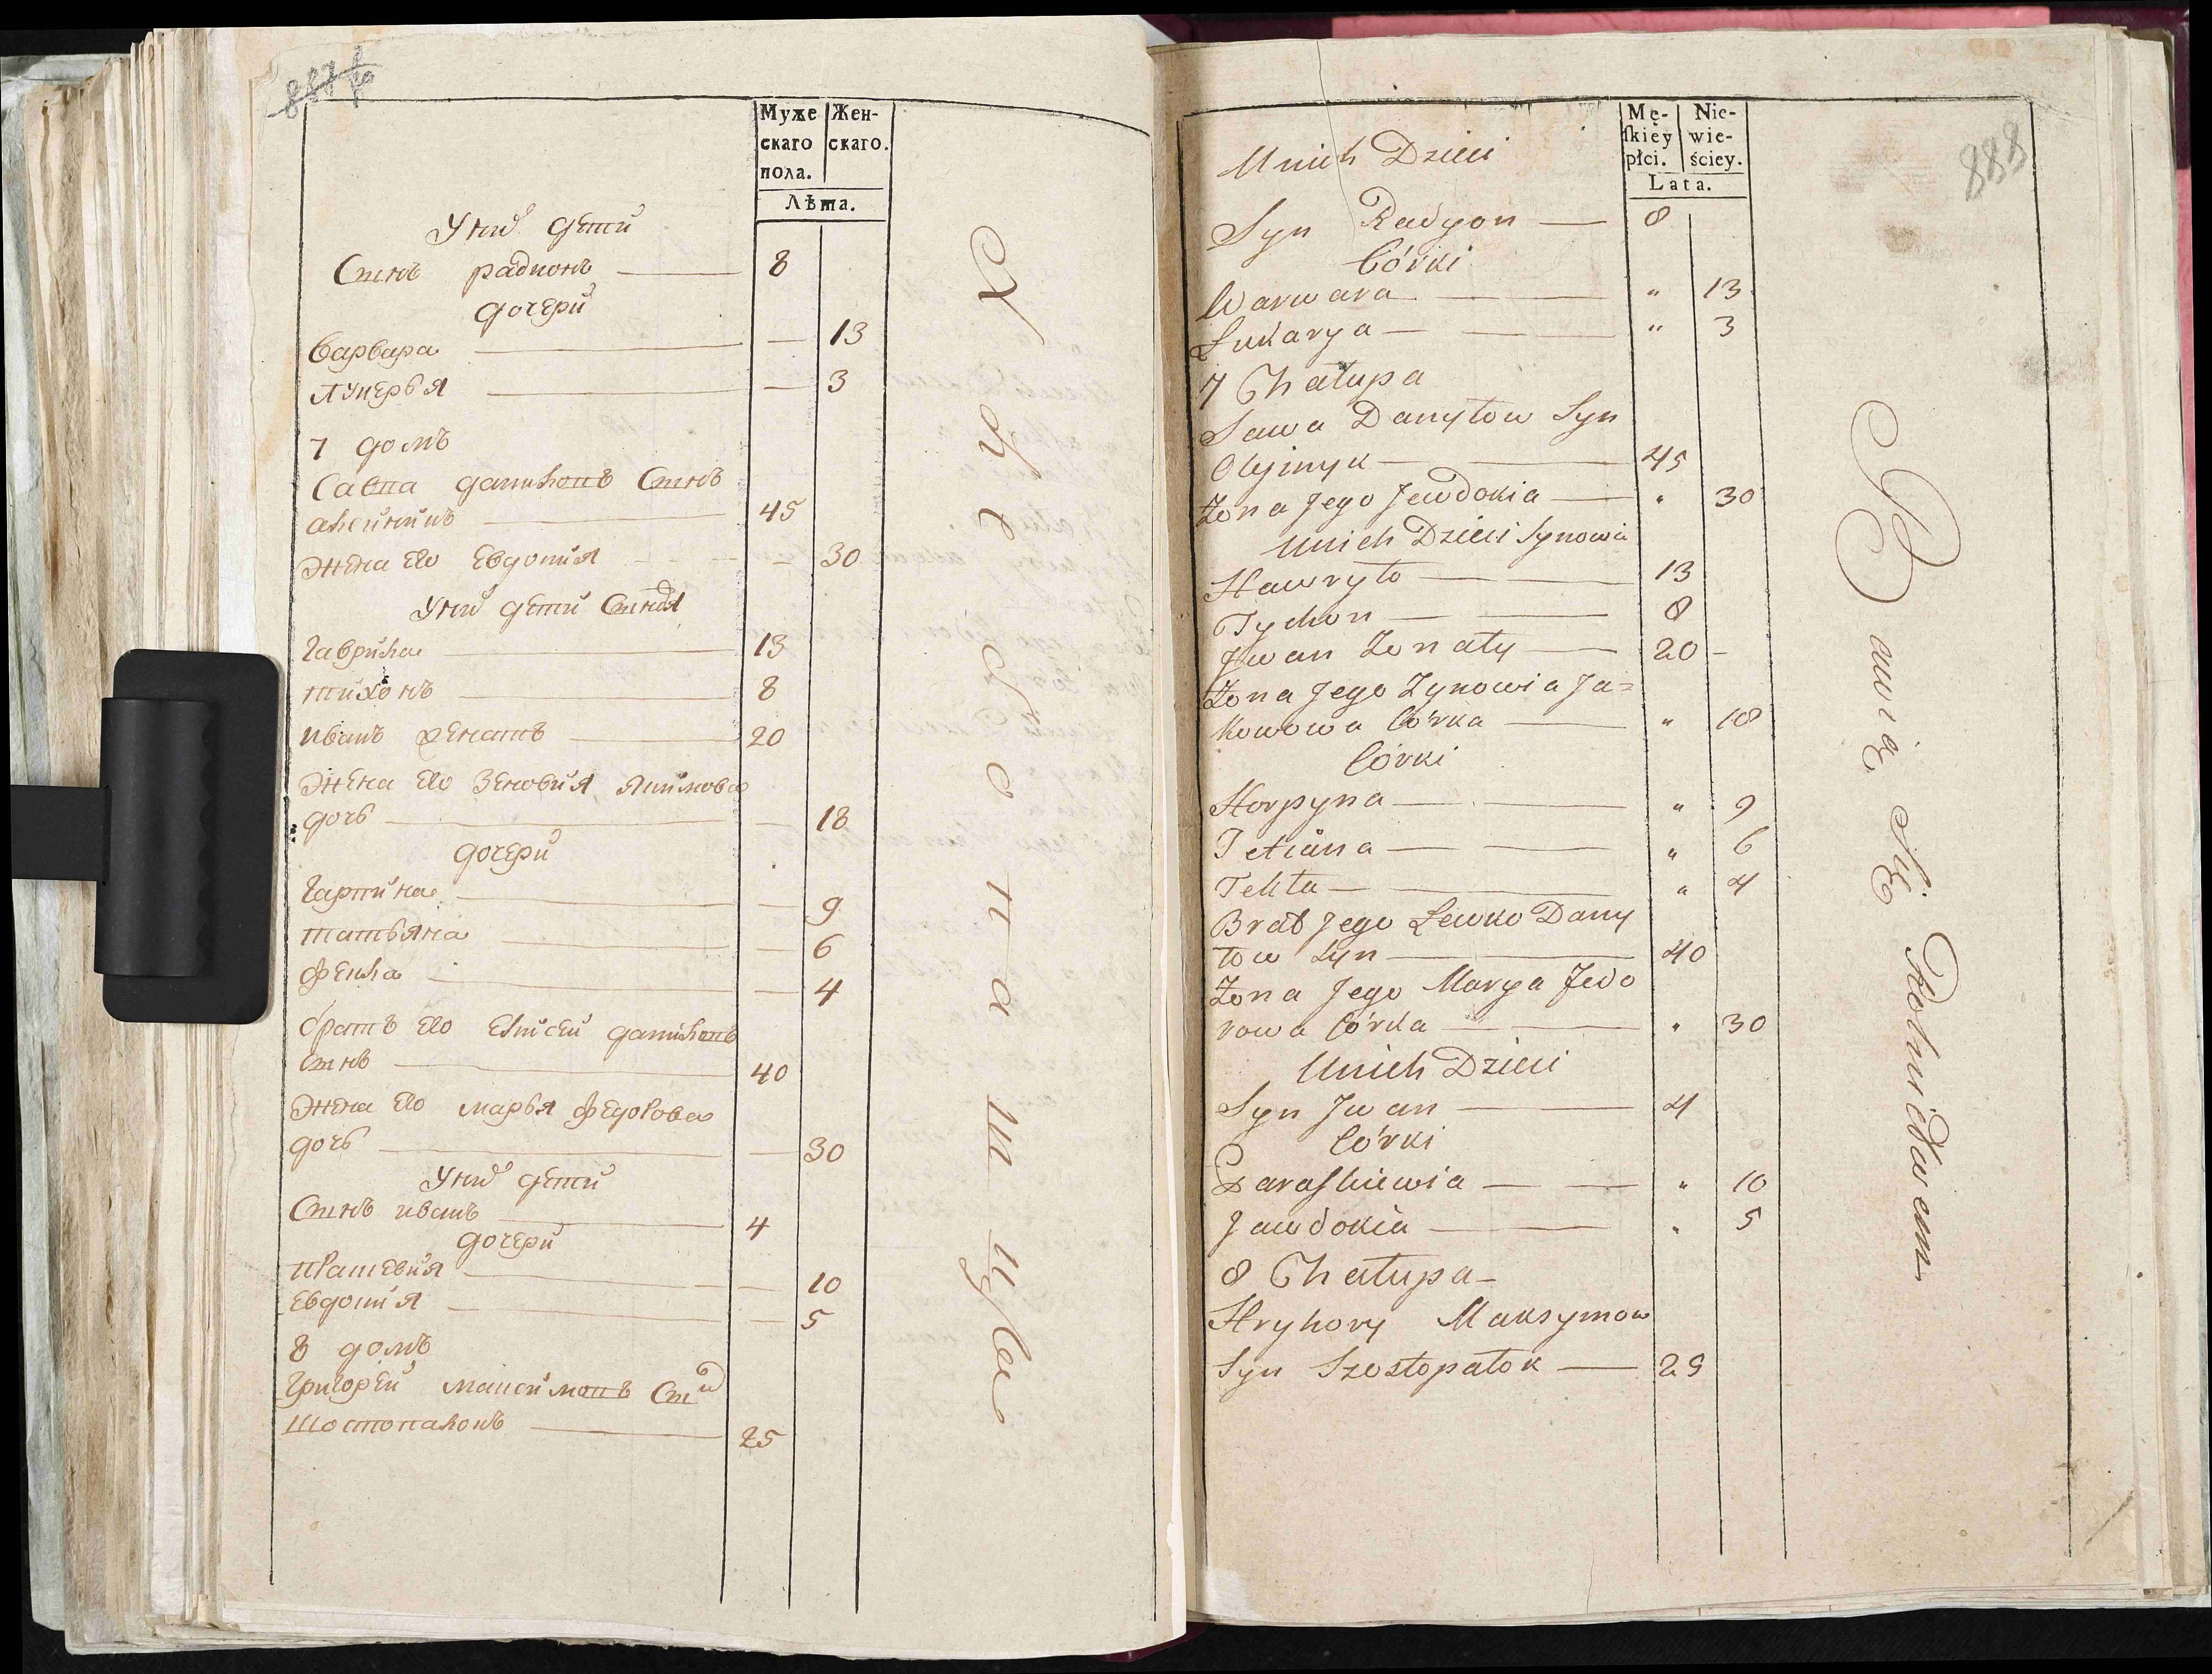 Муже
скаго
пола.
Жен-
скаго.
Лѣта.
У них дети
Сынъ радионъ — 8
дочери
варвара — 13
лукерья — 3
7 домъ
Савва даниловъ Сынъ
алейникъ — 45
жена его Евдокия — 30
У них дети Сыновя
гаврила — 13
тихонъ — 8
иванъ женатъ — 20
жена его Зеновия якимова
дочь — 18
дочери
гарпина — 9
татьяна — 6
фекла — 4
братъ его даниловъ
Сынъ — 40
жена его марья федорова
дочь — 30
У них дети
Сынъ иванъ — 4
дочери
Евдокия — 10
5
8 домъ
григорей максимовъ Сын
шостопалокъ — 25
888
Mę-
ſkiéy
płci.
Nie-
wie-
ściey.
Lata.
Unich Dzieci
Syn Radyon — 8
Córki
Warwara — " 13
Łukarya — " 3
7 Chałupa
Sawa Danyłow Syn
Olejnyk — 45
Żona Jego Jewdokia — " 30
Unich Dzieci Synowie
Hawryło — 13
Tychon — 8
Iwan Żonaty — 20 –
Żona Jego Zynowia Ja=
kowowa Córka — " 18
Córki
Horpyna — " 9
Tetiana — " 6
Tekla — " 4
Brat Jego Lewko Dany
łow Syn — 40
Żona Jego Marya Fedo
rowa Córka — " 30
Unich Dzieci
Syn Iwan — 4
Córki
Paraſkiewia — " 10
Jawdokia — " 5
8 Chałupa
Hryhory Maksymow
Syn Szostopałok — 25
Bawią Się Rolnictwem